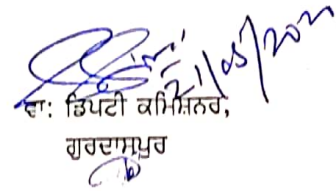 21/05/202
ਵਾ: ਡਿਪਟੀ ਕਮਿਸ਼ਨਰ,
ਗੁਰਦਾਸਪੁਰ